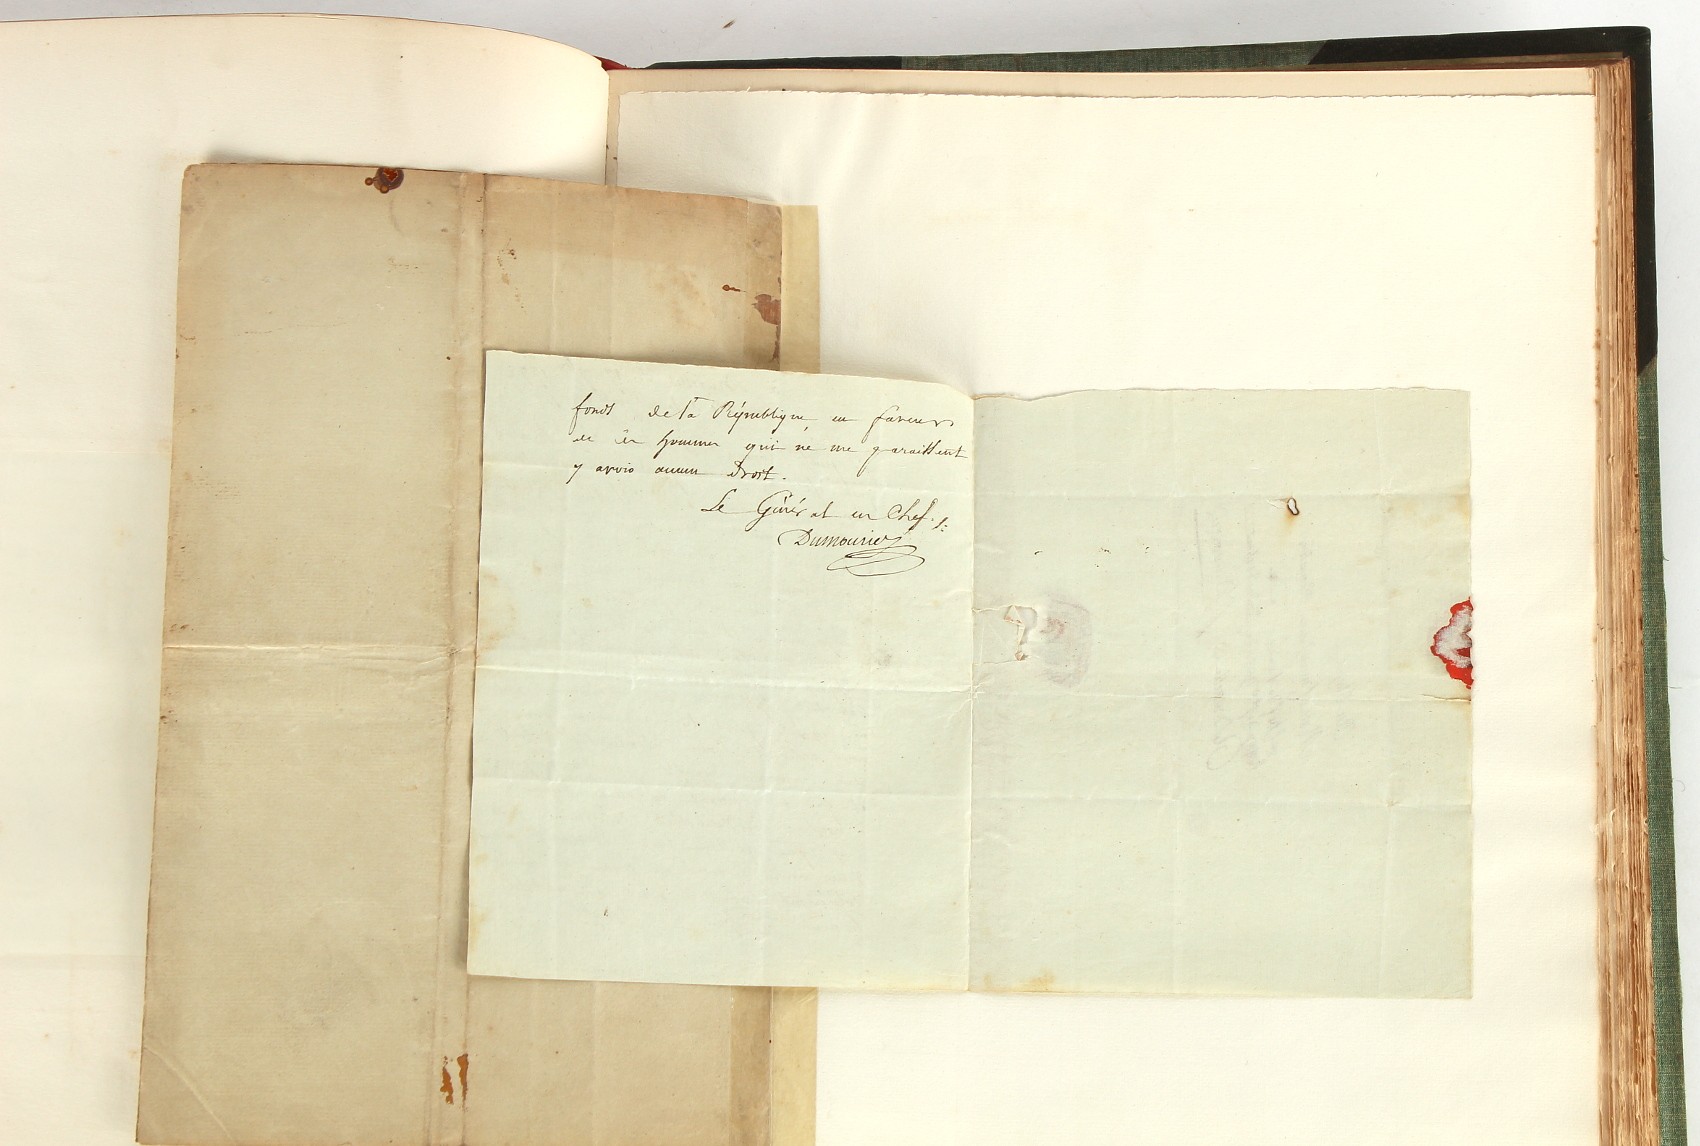 fonds de la République en faveur
de ces hommes qui ne me paraissent
y avoir aucun droit.
Le Général en Chef
Dumouriez